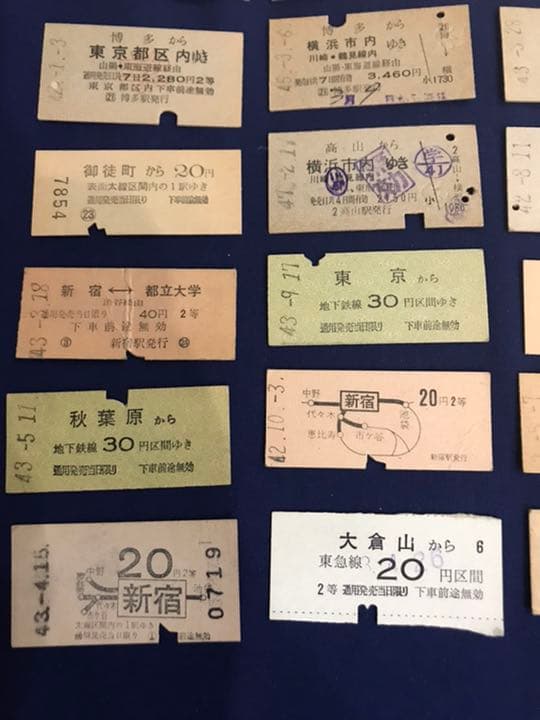 博多から
東京都区内ゆき
山陽・東海道線経由
通用発売日共7日2,280円2等
東京都区内下車前途無効
博多駅発行
御徒町から20円
表面太線区間内の1駅ゆき
通用発売当日限り 下車前途無効
7854
23
新宿 ←→ 都立大学
渋谷経由
通用発売当日限り 40円 2等
下車前途無効
新宿駅発行
秋葉原から
地下鉄線30円区間ゆき
通用発売当日限り 下車前途無効
43-5.11
43.-4.15.
20円2等
中野
代々木
新宿
太線区間内の1駅ゆき
通用発売当日限り
0719
博多から
横浜市内ゆき
川崎・鶴見線内
山陽・東海道線経由
3,460円
小1730
高山から
横浜市内ゆき
2 高山駅発行
小
東京から
地下鉄線30円区間ゆき
通用発売当日限り 下車前途無効
43-9.17
中野
新宿
代々木
池袋
恵比寿
市ケ谷
20円2等
新宿駅発行
42.10.-3.
大倉山から 6
東急線 20円区間
2等 通用発売当日限り 下車前途無効
42-8.11